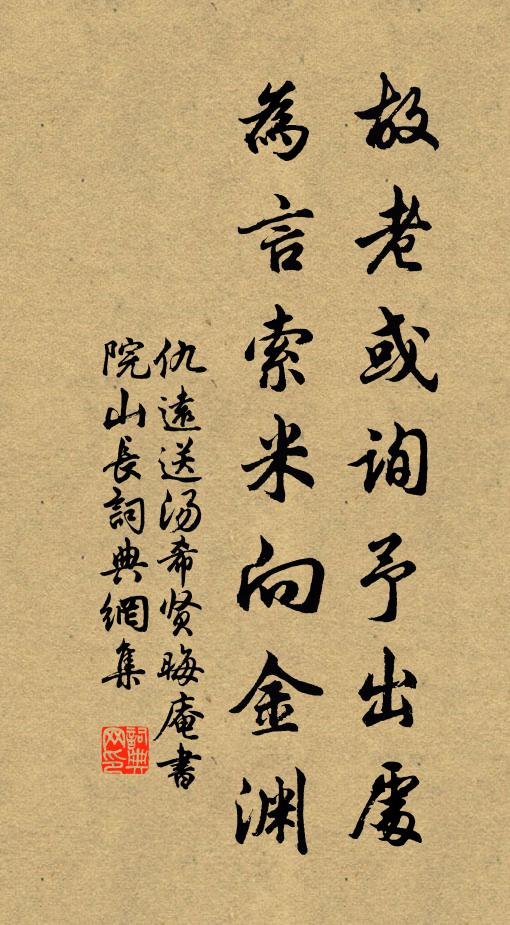 故老或询予出處
為言索米向金渊
仇遠送汤希贤晦庵書
院山長詞典網集
詞典
网印